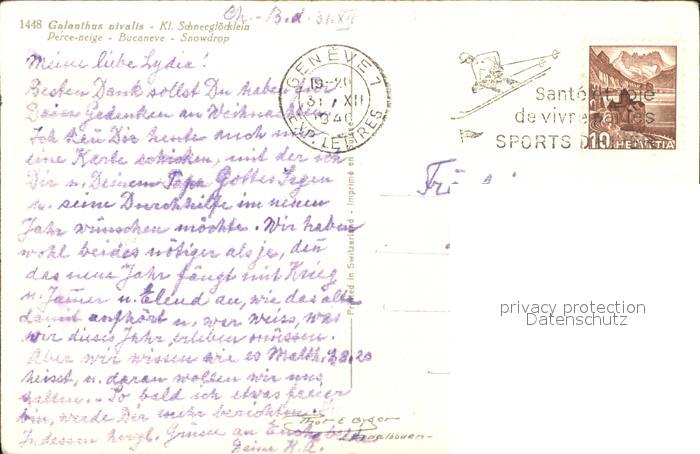 Ch.-B.d. 31. XII
1448 Galanthus nivalis - Kl. Schneeglöcklein
Perce-neige - Bucaneve - Snowdrop
Meine liebe Lydia!
Besten Dank sollst Du haben für
Dein Gedenken an Weihnachten.
Ich Dir heute auch nur
eine Karte schicken, mit der ich
Dir u. Deinem Papa Gottes Segen
u. seine Durchhilfe im neuen
Jahr wünschen möchte. Wir haben
wohl beides nötiger als je, denn
das neue Jahr fängt mit Krieg
u. Jamer u. Elend an, wie das alte
damit aufhört u. wer weiss, was
wir dieses Jahr erleben müssen.
Aber wir wissen wie es Matth. 28.20
heisst, u. daran wollen wir uns
halten. So bald ich etwas freier
bin, werde Dir mehr berichten.
Indessen herzl. Grüsse an Euch
Deine H.A.
GENÈVE 1
19-20
31. XII
1940
EXP. LETTRES
Santé et joie
de vivre par les
SPORTS D'
10 HELVETIA
Printed in Switzerland - Imprimé en
privacy protection
Datenschutz
Thor E Gyger
Adelboden